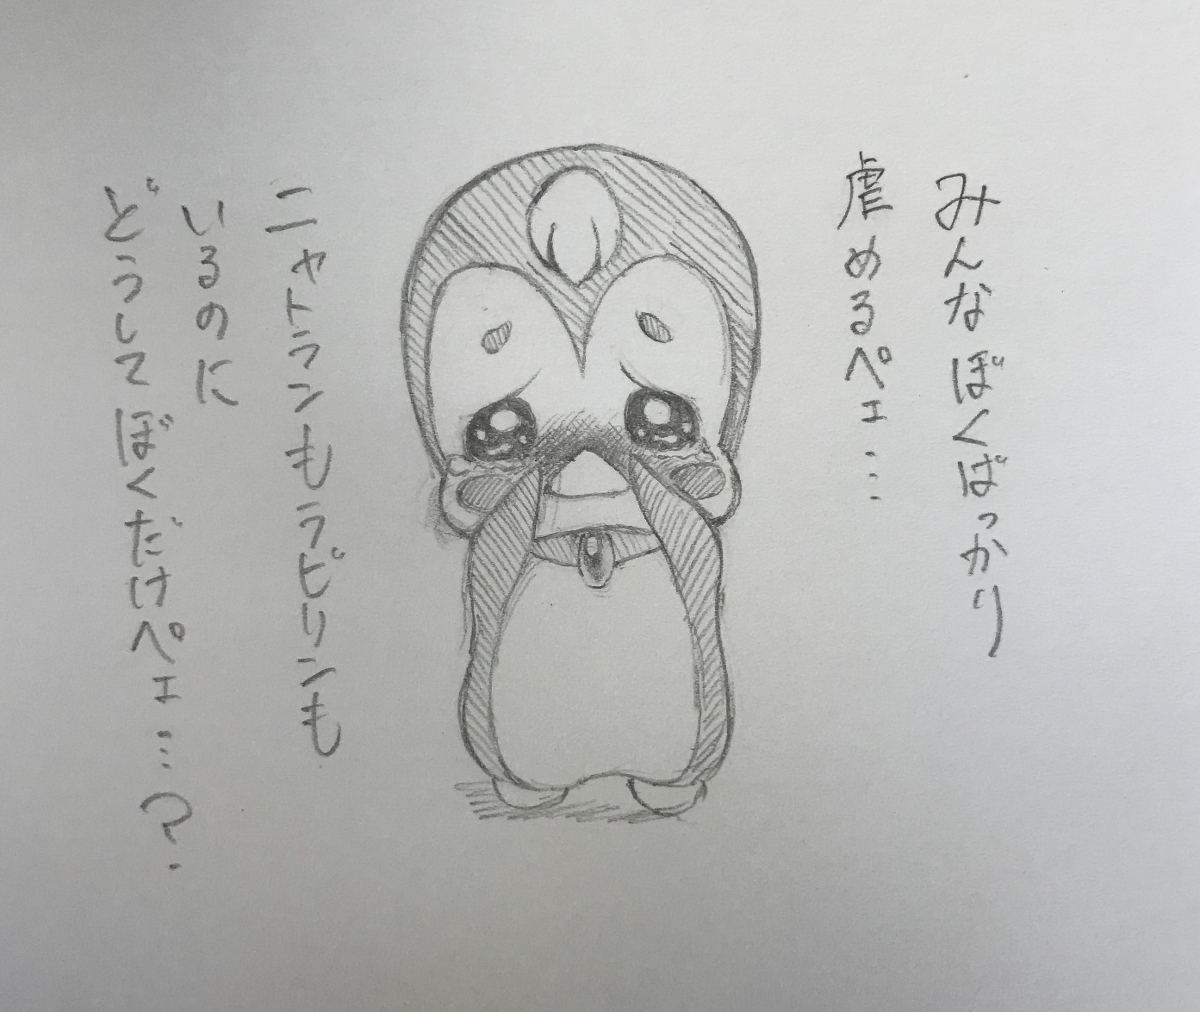 みんなぼくばっかり
虐めるペェ…
ニャトランもラビリンも
いるのに
どうしてぼくだけペェ…?